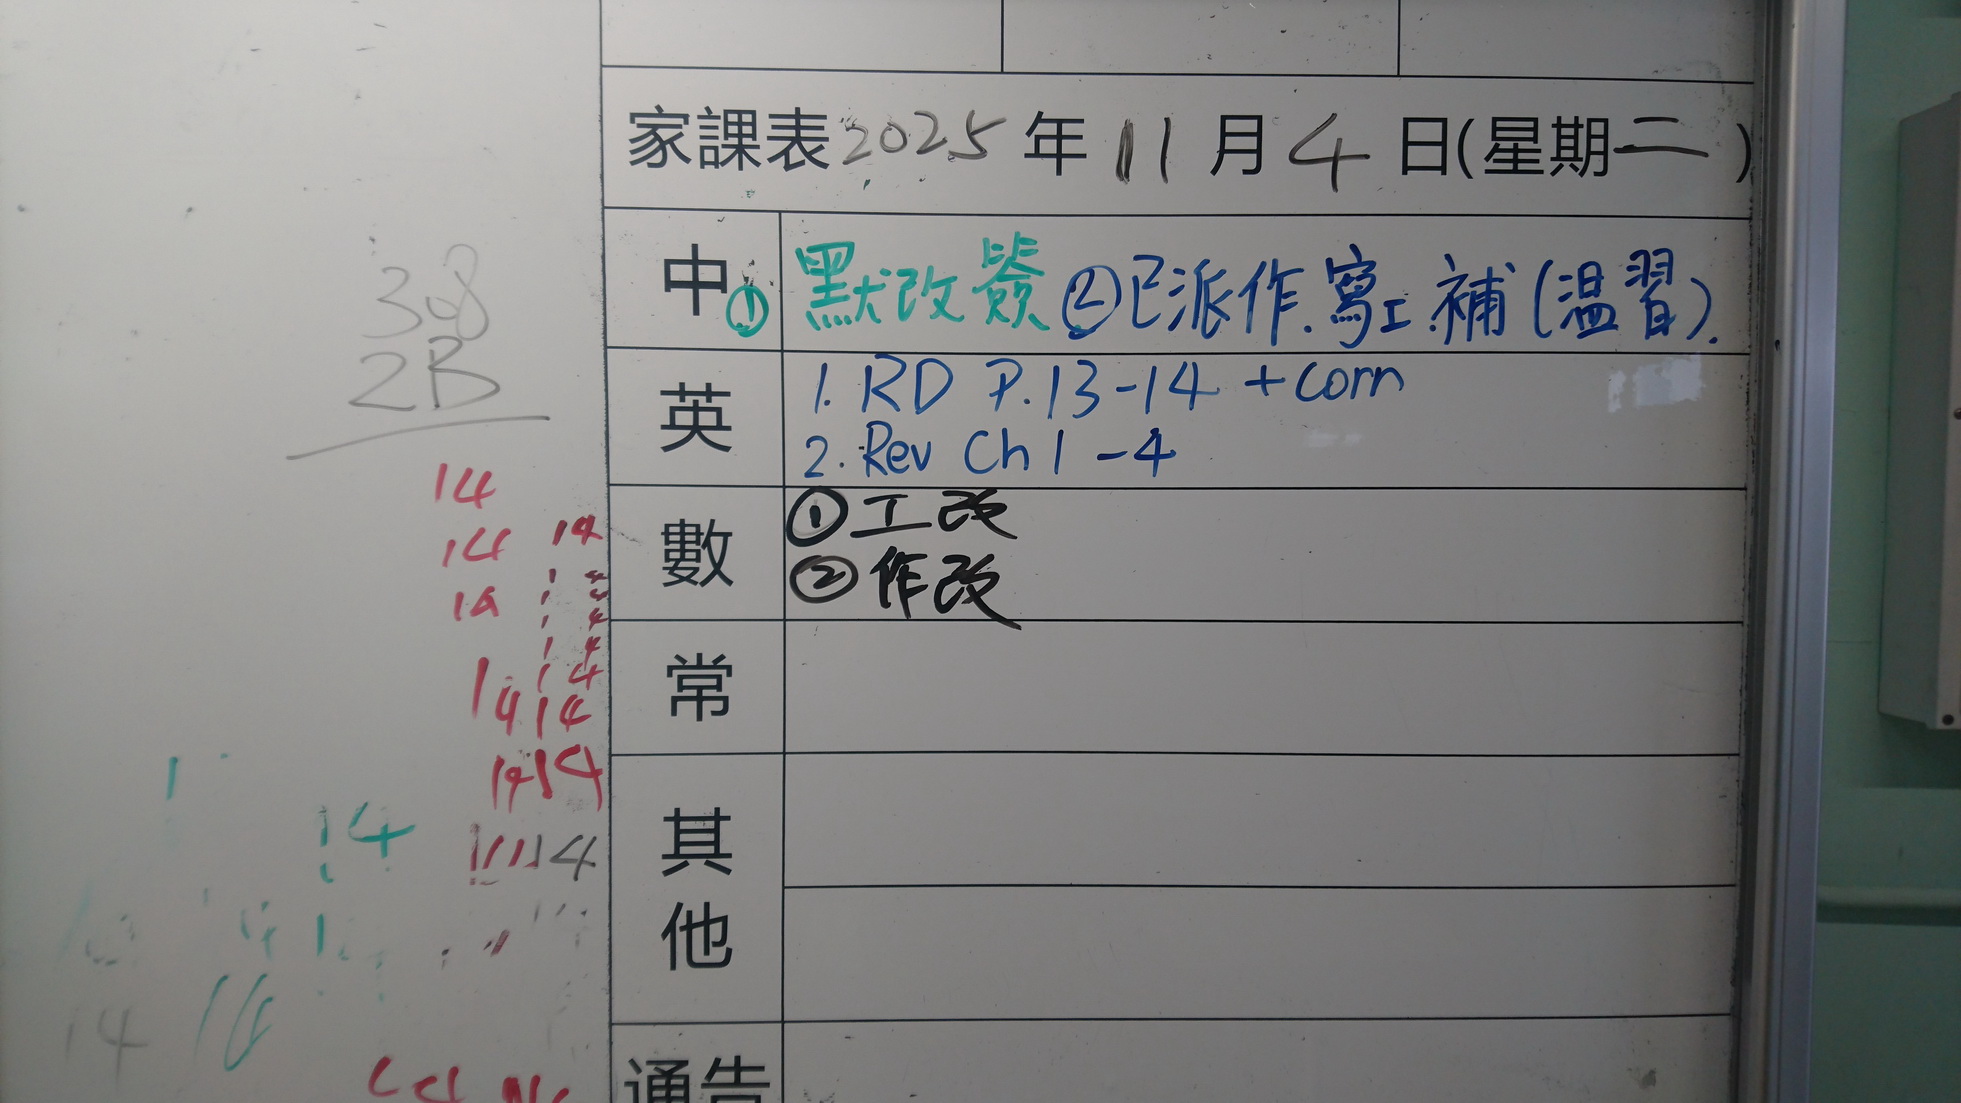 家課表 2025 年 11 月 4 日(星期二)
中 ① 默改簽 ② 已派作.寫工.補(温習).
英
1. RD P.13-14 + corr
2. Rev Ch 1-4
數
① 工改
② 作改
常
其他
通告
308
2B
14
14 14
14
14
14
14 14
14
14
14